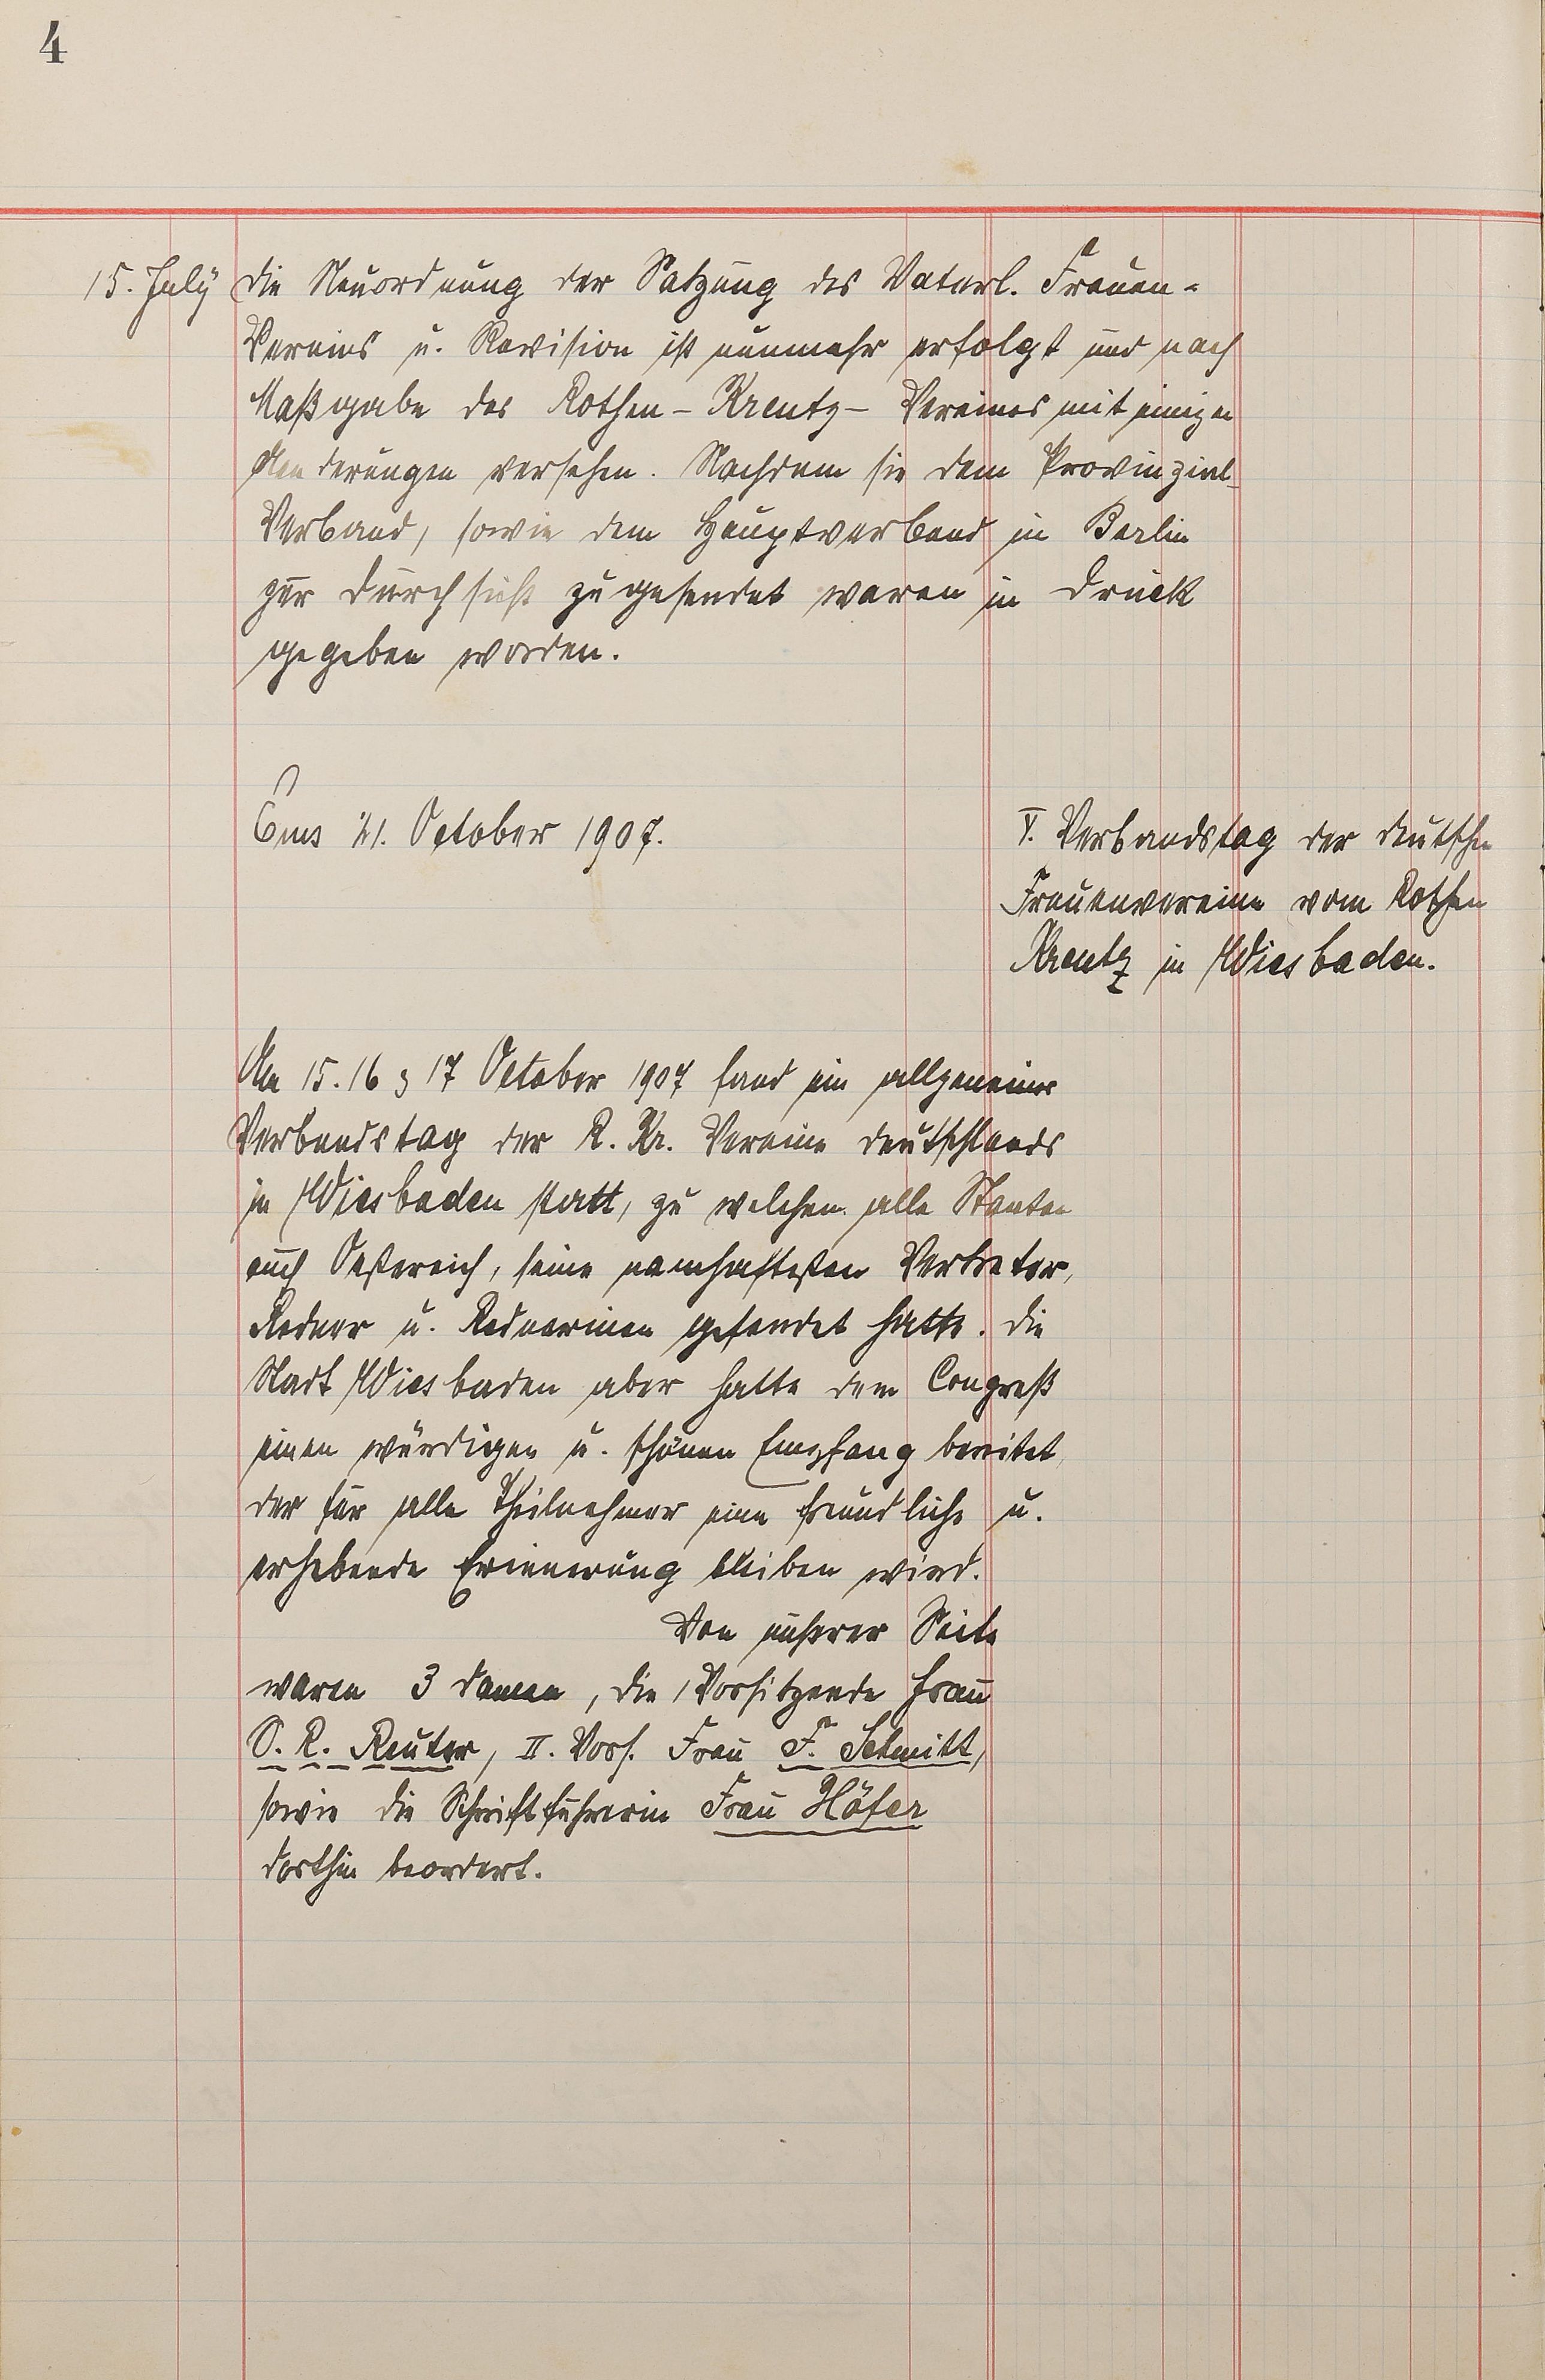 4
15. July die Neuordnung der Satzung des Vaterl. Frauen-
Vereins u. Revision ist nunmehr erfolgt und nach
Maßgabe des Rothen-Kreutz-Vereines mit einigen
Aenderungen versehen. Nachdem sie dem Provinzial-
Verband, sowie dem Hauptverband in Berlin
zur Durchsicht zugesendet waren in Druck
gegeben worden.
Ems 21. October 1907.
V. Verbandstag der deutschen
Frauenvereine vom Rothen
Kreutz in Wiesbaden.
Am 15. 16 & 17 October 1907 fand ein allgemeiner
Verbandstag der R. Kr. Vereine Deutschlands
in Wiesbaden statt, zu welchen alle Staaten
auch Oestereich, seine namhaftesten Vertreter,
Redner u. Rednerinen gesendet hatte. Die
Stadt Wiesbaden aber hatte dem Congreß
einen würdigen u. schönen Empfang bereitet,
der für alle Theilnehmer eine freundliche u.
erhebende Erinnerung bleiben wird.
Von unserer Seite
waren 3 Damen, die 1 Vorsitzende Frau
S. R. Reuter, II. Vors. Frau F. Schmitt,
sowie die Schriftführerin Frau Höfer
dorthin beordert.